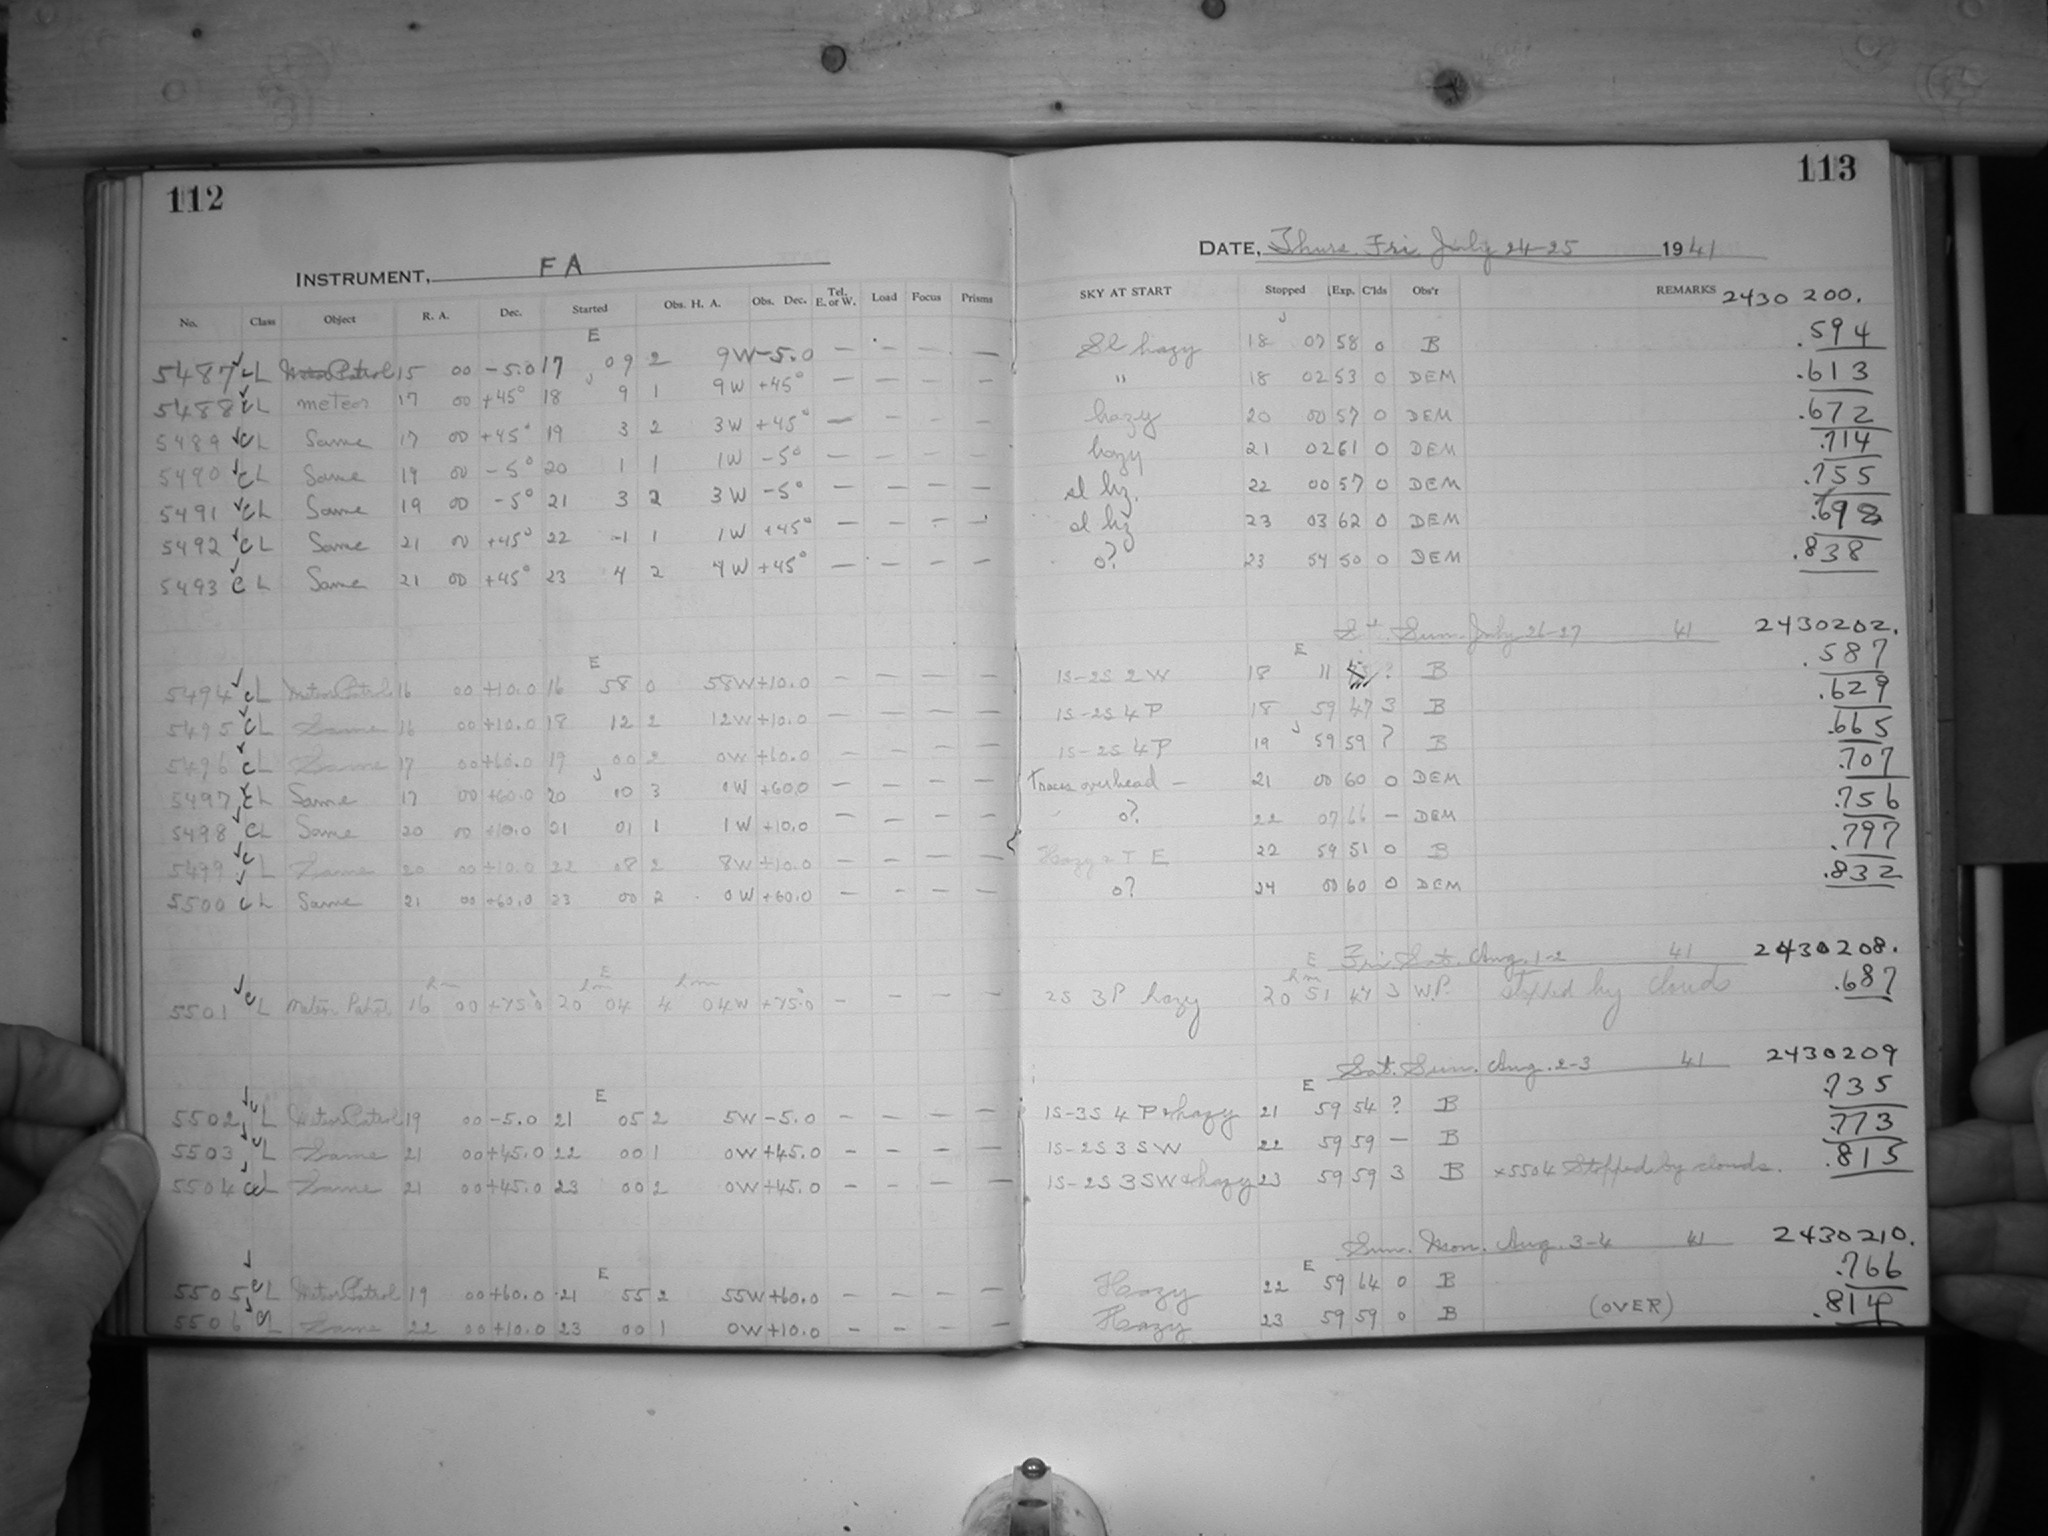 112
113
INSTRUMENT, FA
DATE, Thurs. Fri. July 24-25 1941
No. Class Object R. A. Dec. Started Obs. H. A. Obs. Dec. Tel. E. or W. Load Focus Prisms SKY AT START Stopped Exp. C'lds Obs'r REMARKS 2430 200.
E J
5487 CL Meteor Patrol 15 00 -5.0 17 09 2 9W -5.0 — — — — Sl hazy 18 07 58 0 B .594
J
5488 CL meteor 17 00 +45° 18 9 1 9W +45° — — — — " 18 02 53 0 DEM .613
5489 CL Same 17 00 +45° 19 3 2 3W +45° — — — — hazy 20 00 57 0 DEM .672
5490 CL Same 19 00 -5° 20 1 1 1W -5° — — — — hazy 21 02 61 0 DEM .714
5491 CL Same 19 00 -5° 21 3 2 3W -5° — — — — sl hz. 22 00 57 0 DEM .755
5492 CL Same 21 00 +45° 22 -1 1 1W +45° — — — — sl hz 23 03 62 0 DEM .698
5493 CL Same 21 00 +45° 23 4 2 4W +45° — — — — 0? 23 54 50 0 DEM .838
Sat. Sun. July 26-27 41 2430202.
E E
5494 CL Meteor Patrol 16 00 +10.0 16 58 0 58W +10.0 — — — — 1S-2S 2W 18 11 ? B .587
5495 CL Same 16 00 +10.0 18 12 2 12W +10.0 — — — — 1S-2S 4P 18 59 47 3 B .629
J
5496 CL Same 17 00 +60.0 19 00 2 0W +60.0 — — — — 1S-2S 4P 19 59 59 ? B .665
J
5497 CL Same 17 00 +60.0 20 00 3 0W +60.0 — — — — Traces overhead — 21 00 60 0 DEM .707
5498 CL Same 20 00 +10.0 21 01 1 1W +10.0 — — — — 0? 22 07 66 — DEM .756
5499 CL Same 20 00 +10.0 22 08 2 8W +10.0 — — — — Hazy 2 T E 22 59 51 0 B .797
5500 CL Same 21 00 +60.0 23 00 2 0W +60.0 — — — — 0? 24 00 60 0 DEM .832
E Fri. Sat. Aug. 1-2 41 2430208.
h m E h m h m h m
5501 CL Meteor Patrol 16 00 +75.0 20 04 4 04W +75.0 — — — — 2S 3P hazy 20 51 47 3 W.P. stopped by clouds .687
Sat. Sun. Aug. 2-3 41 2430209
E E
5502 CL Meteor Patrol 19 00 -5.0 21 05 2 5W -5.0 — — — — 1S-3S 4P & hazy 21 59 54 ? B .735
5503 CL Same 21 00 +45.0 22 00 1 0W +45.0 — — — — 1S-2S 3SW 22 59 59 — B .773
5504 CL Same 21 00 +45.0 23 00 2 0W +45.0 — — — — 1S-2S 3SW & hazy 23 59 59 3 B x5504 Stopped by clouds. .815
Sun. Mon. Aug. 3-4 41 2430210.
E E
5505 CL Meteor Patrol 19 00 +60.0 21 55 2 55W +60.0 — — — — Hazy 22 59 64 0 B .766
5506 CL Same 22 00 +10.0 23 00 1 0W +10.0 — — — — Hazy 23 59 59 0 B (OVER) .814